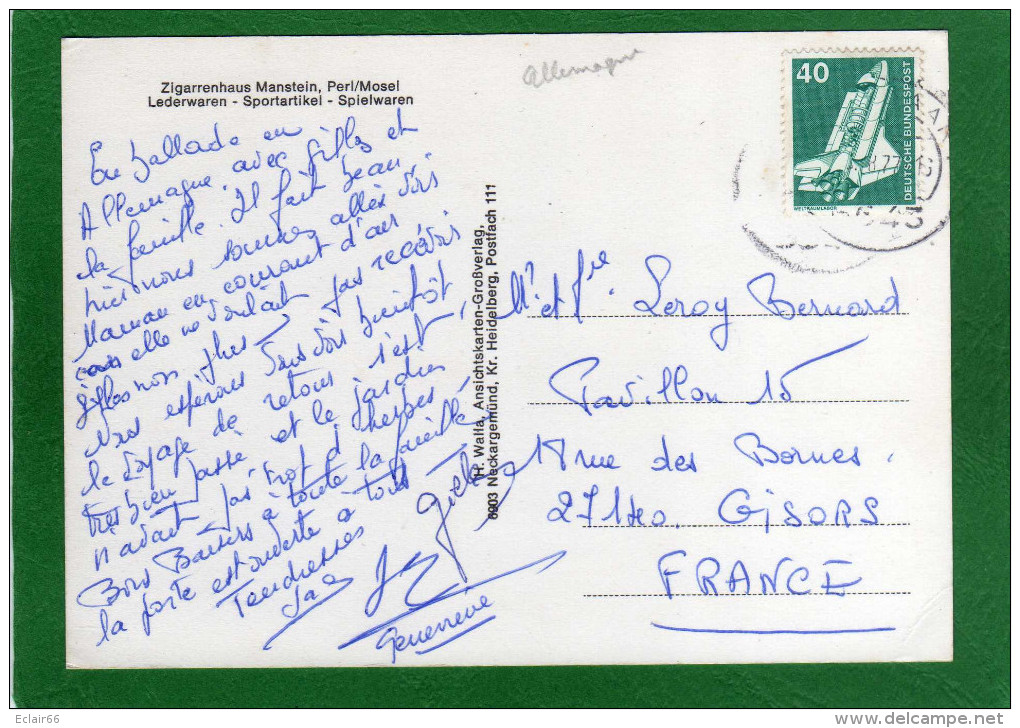 Zigarrenhaus Manstein, Perl/Mosel
Lederwaren - Sportartikel - Spielwaren
Allemagne
40
DEUTSCHE BUNDESPOST
WELTRAUMLABOR
En ballade en
Allemagne avec Gilles et
la famille. Il fait beau
hier nous sommes allés voir
Maman en courant d'air
car elle ne voulait pas recevoir
Gilles non plus
Nous espérons vous voir bientôt
le voyage de retour s'est
très bien passé et le jardin
n'avait pas trop d'herbes
Bons Baisers à toute la famille
la porte est ouverte à tous
Tendresses
Gilles
Genevieve
H. Walla, Ansichtskarten-Großverlag,
6903 Neckargemünd, Kr. Heidelberg, Postfach 111
Mr et Me Leroy Bernard
Pavillon 15
rue des Bornes.
27140. GISORS
FRANCE
Eclair66
delcampe.net